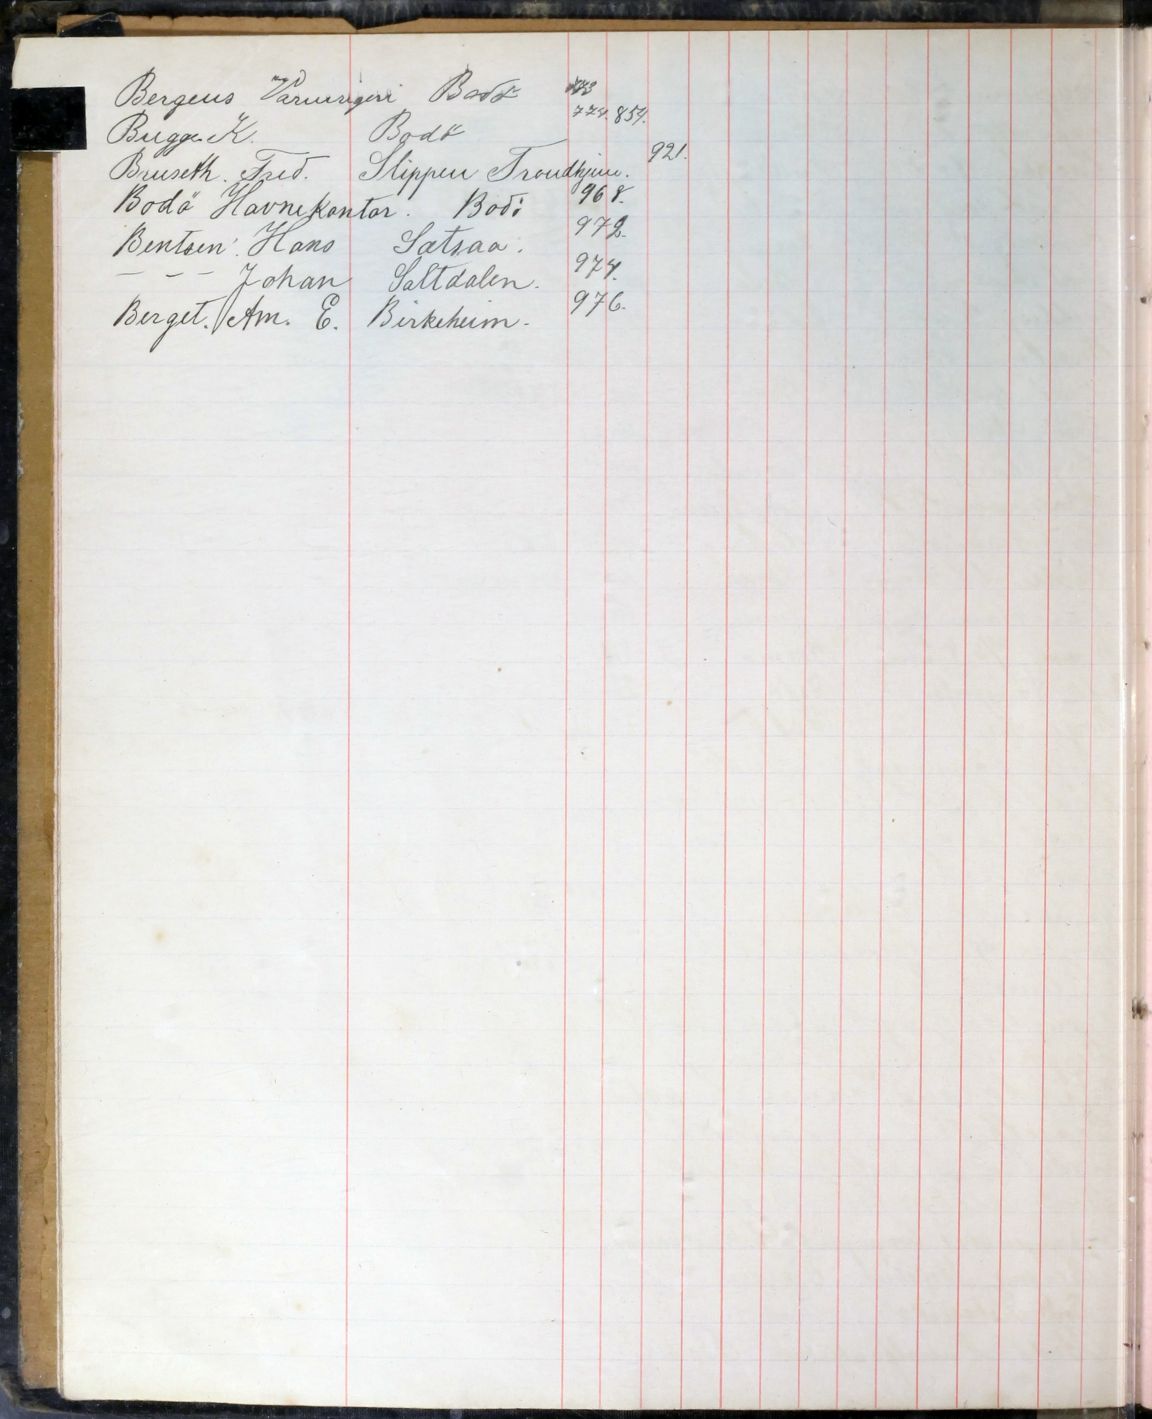 Bergens Bodö
Bugge K. Bodö 774. 854.
Bruseth. Fred. Slippen Trondhjem. 921.
Bodö Havnekontor. Bodö 968.
Bentsen. Hans Sætsaa. 972.
- - - Johan Saltdalen. 974.
Berget. Am. E. Birkeheim. 976.